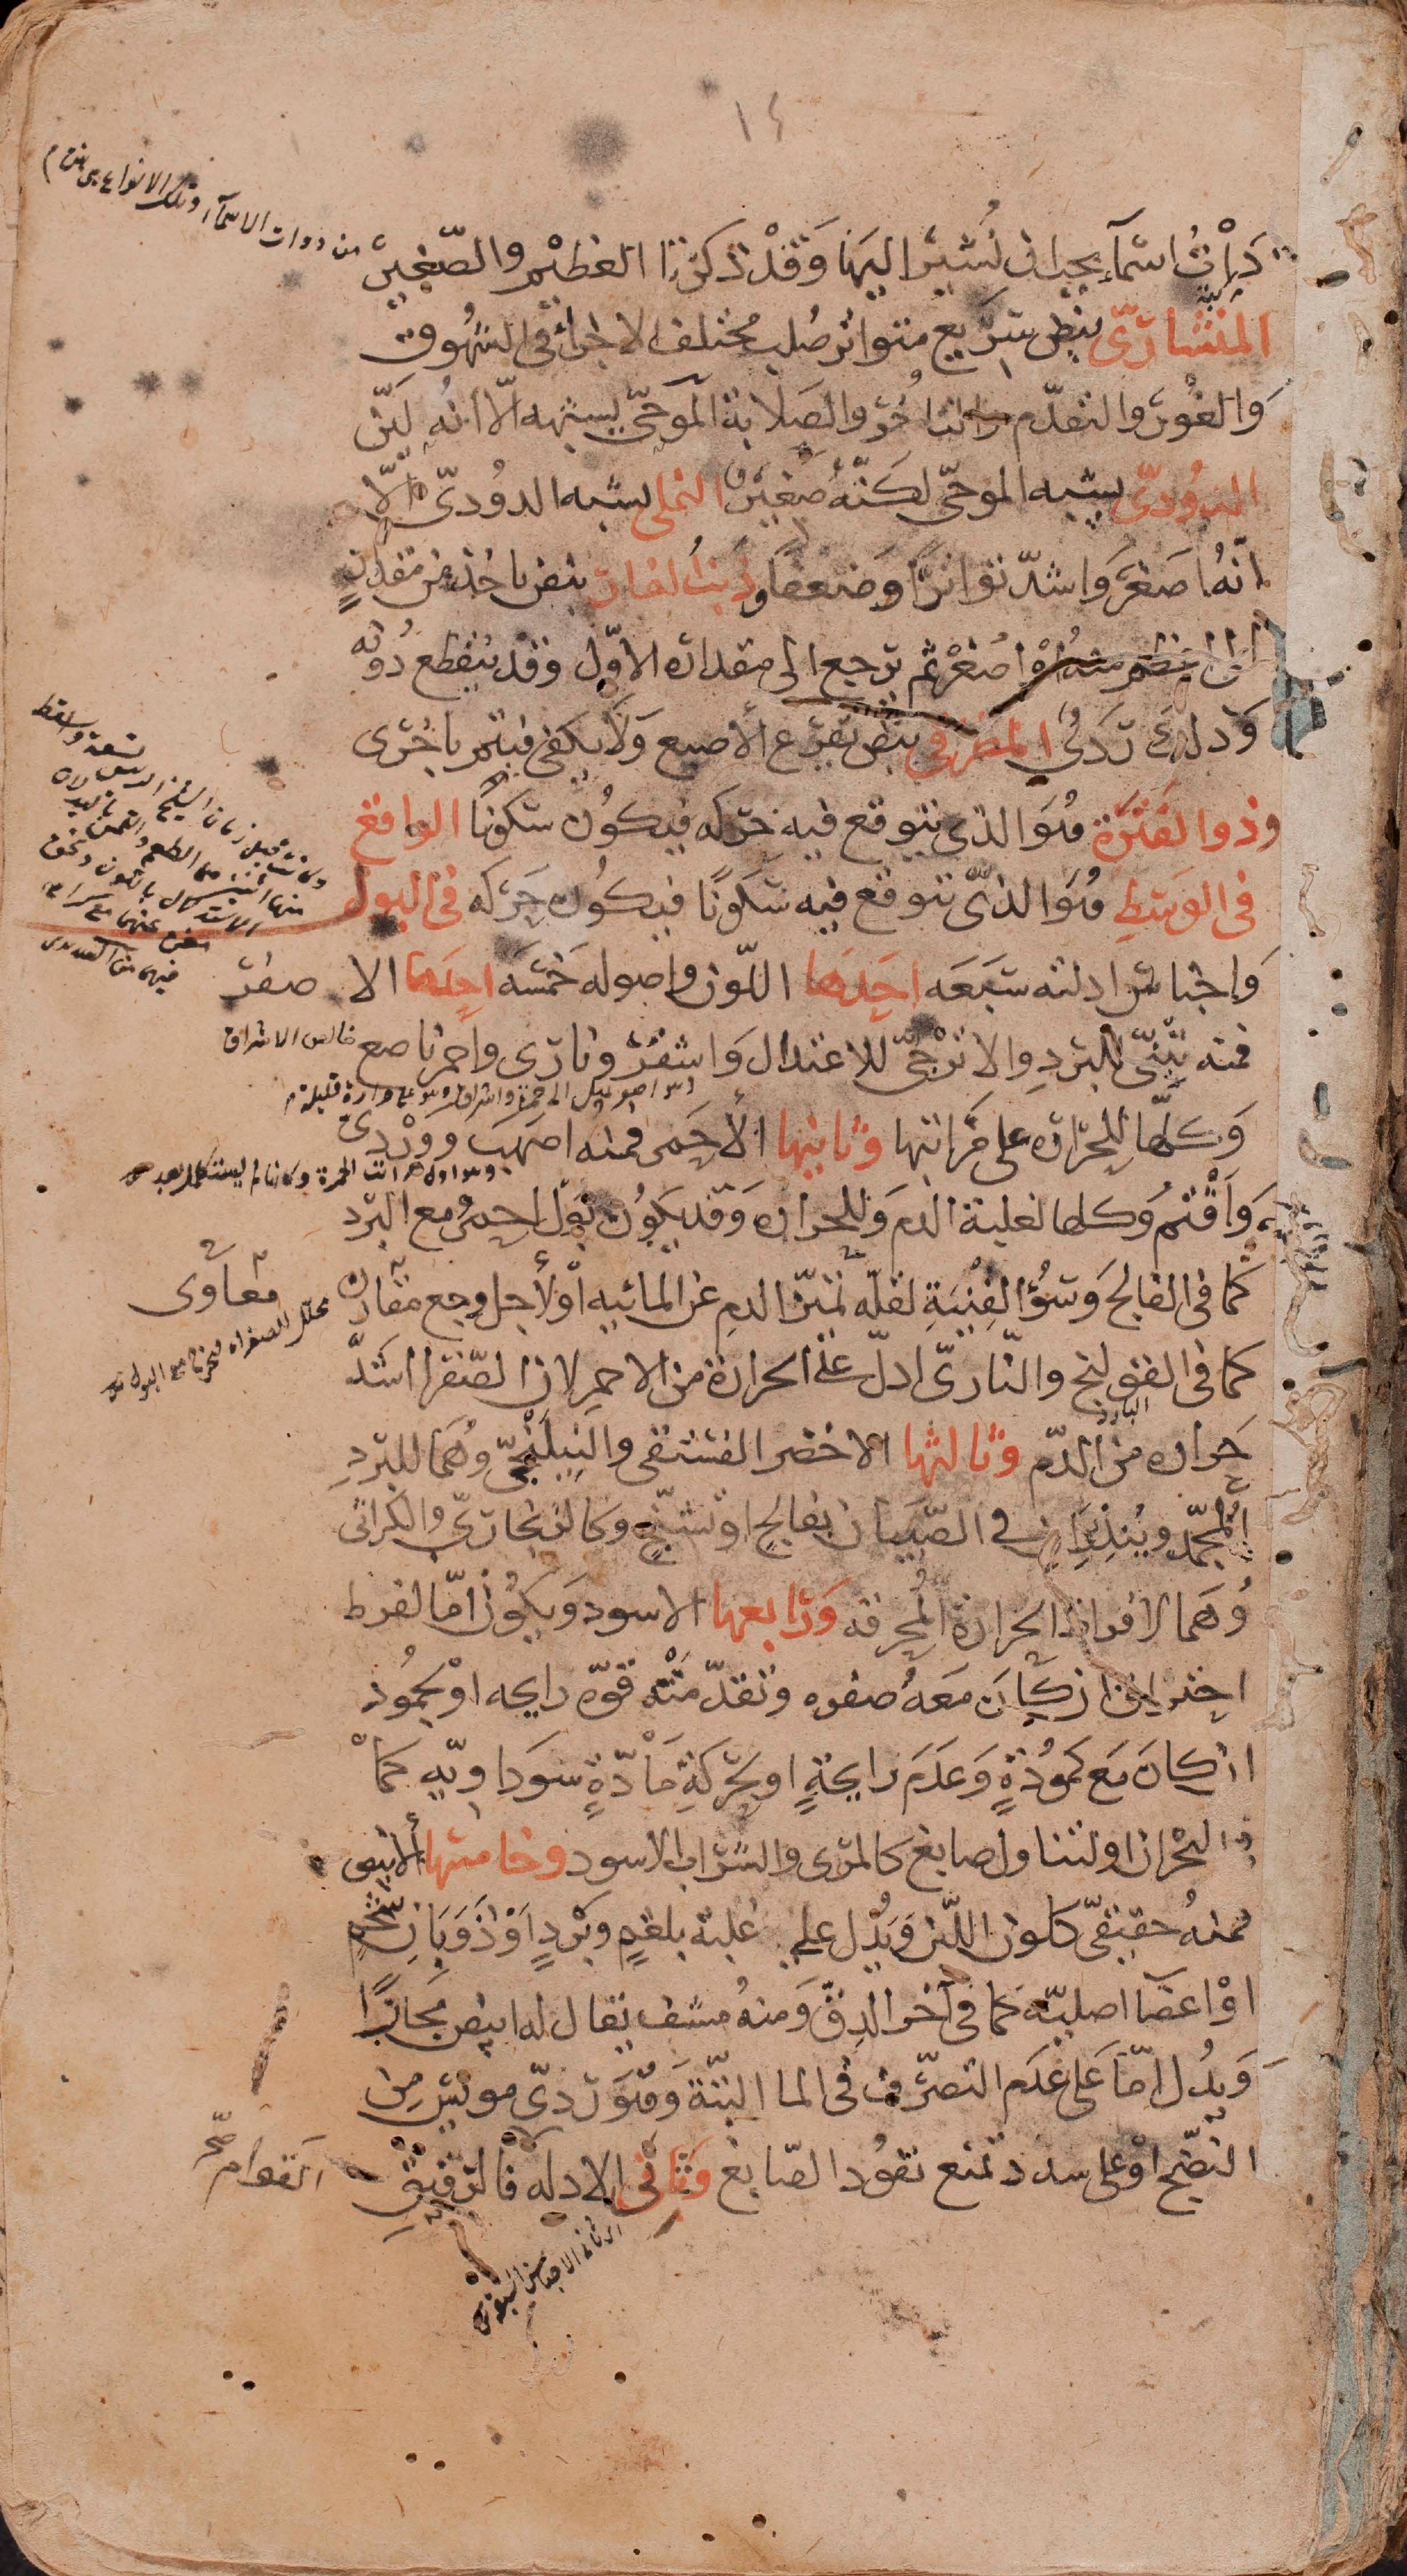 ١٤
من ذوات الاسمآء وتلك الانواع هى هذه م
ذوات اسمآء يجب ان نُشير اليها وَقَدْ ذكرنا العظيم والصّغير
المنشارىّ نبض سَريع متواتر صُلب مُختلف الاجزآء فى الشهُوق
وَالغُور والتقدّم والتأخُر والصَلابة الموجىّ يشبهه الّا انّه ليّن
الدُودىّ يشبه الموجىّ لكنّهُ صَغير النملى يشبه الدوُدىّ الّا
انّهُ اصَغر وَاشدّ تواترًا وَضعفا وذنبُ الفار نبض ياخذ من مقدار
الى اعظم منه اوْ اصغرْ ثم يرجع الى مقداره الاوّل وقد ينقطع دُونه
وَذلك ردَىُ المطرقى نبض يقرَع ألاصبع وَلا يكفى فيتم باخُرى
وذو الفَتْرَة هُوَ الذى يتوقع فيه حَركه فيكوُن سكونًا الواقع
فى الوَسَطِ هُوَ الذّى يتوقع فيه سَكونًا فيكوُن حَركه فى البول
وَاجناس ادلته سَبَعَه احَدهَا اللّون واصوله خمسَه احَدهَا الاصفر
فمنه تبنىّ للبَردِ والاترْجىّ للاعتدال وَاشقَر ونارى واحمر ناصع
خالص الاشراق
وَكلّها للحَرارة على مَرَاتبها وثانيها الأحَمر فمنه اصَهَب ووَرْدىّ
وَاقْتَم وَكلها لغلبة الدم وَللحرارة وَقد يَكوُن بَوْل احمرُ مع البَرد
كما فى الفالج وَسُوْء القِنْيَةِ لقلّة تميّز الدم عن المائيه أوْلأجل وجع مقارن
معآوى
كما فى القولنج والنّارىّ ادلّ على الحرارة من الاحمر لان الصّفرا اشَدّ
حَرارة من الدّم وثالثها الاخضر الفستقى والنيلَنْجىّ وهُمَا للبَردِ
المُجمّد ويُنذِرَان فى الصّبيَان بفالج او تشنّج وكالزنجَارىّ والكراثى
وُهَما لافراط الحرارة المُحرقه وَرَابعها الاسود وَيكوُن امّا لفرط
احتراق ان كانَ مَعَهُ صفره وتقدّمَتْهُ قوّة رايحه اوْ لجُمُود
ان كانَ مَع كمُودَةٍ وَعَدَم رايحةٍ او لحَركَةِ مَادّةٍ سَودَاويّه كما
فى البُحْران اولتناول صابغ كالمَرى والشّراب الاسود وخامسها الأبيض
فمنهُ حقيقىّ كلون اللّبن وَيدُل على غلبة بلغمٍ وبَرْدٍ اَوْذَوَبَانِ شَحْمٍ
اوْ اعضآ اصليّه كما فى آخر الدِقّ وَمنهُ مشف يقال له ابيض مجَازًا
وَيدُل امّا عَلى عَدَم التصرّف فى الما البتّة وَهوَ ردىّ مويس مِن
النّضج اوْ على سدد تمنع نفوُد الصّابغ وثانى الادله فالرّقيق
القوام صح